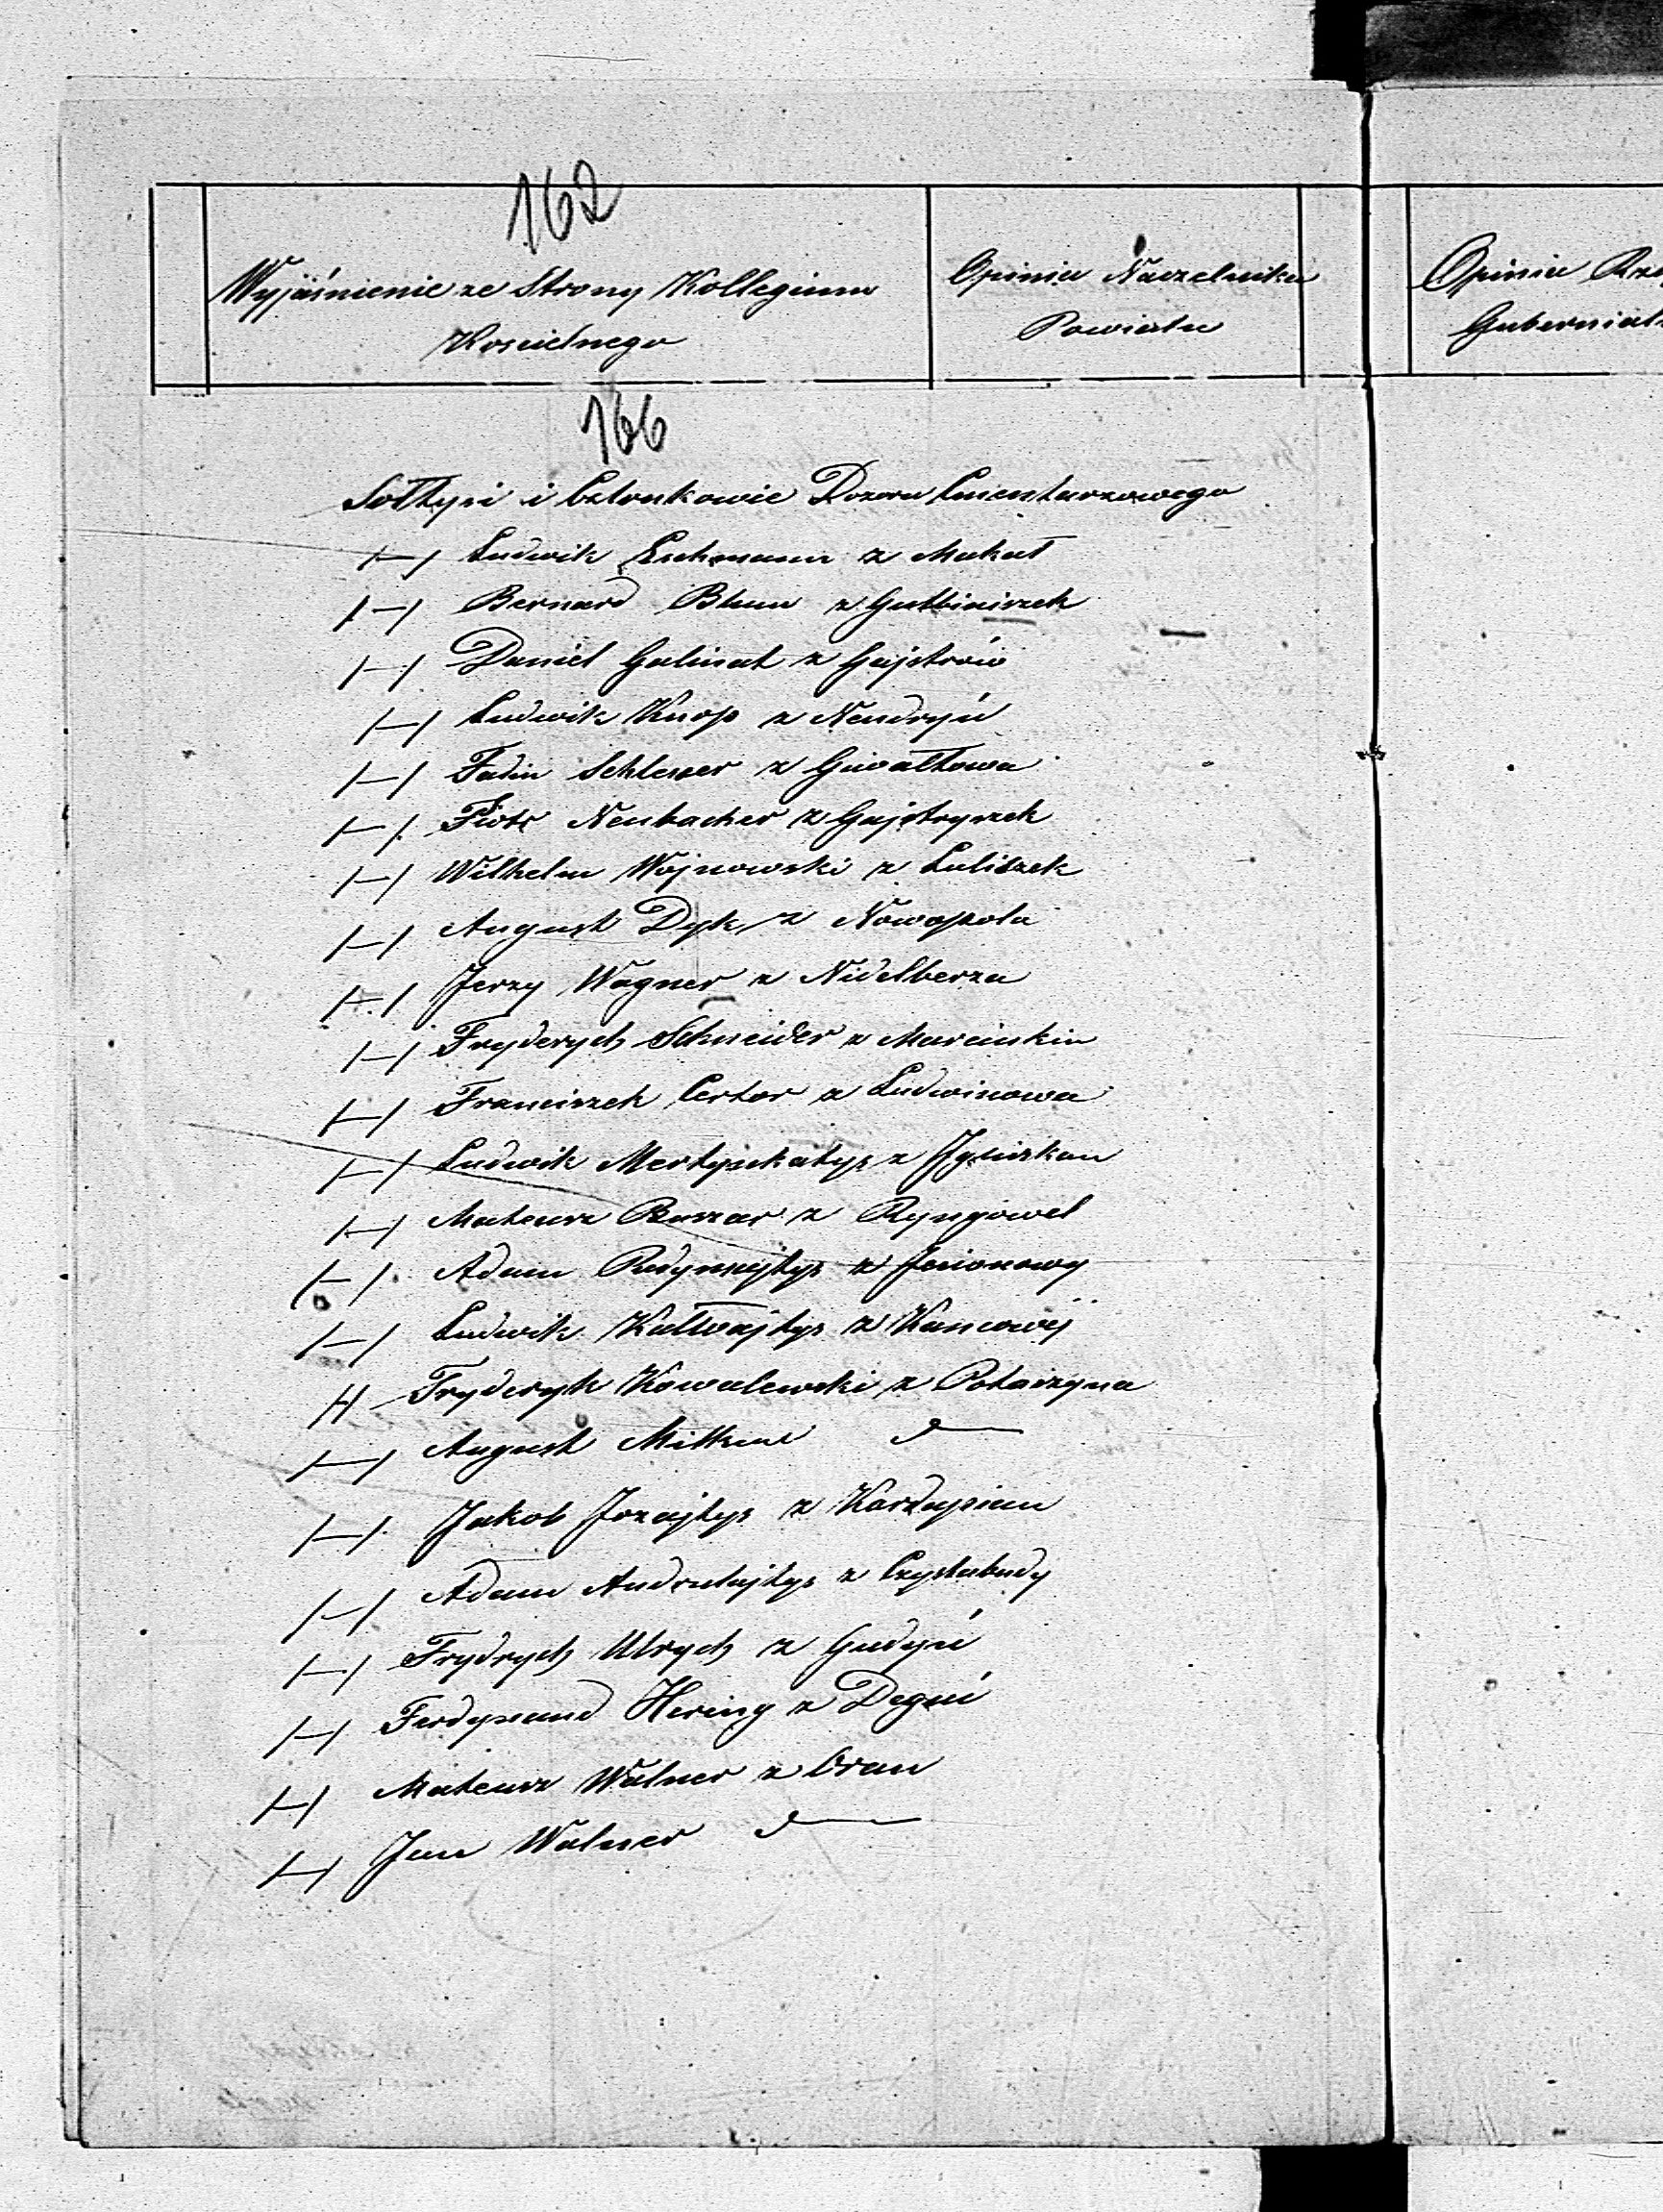 162
Wyjaśnienie ze Strony Kollegium
Kościelnego
Opinia Naczelnika
Powiatu
Opinia Rzą
Gubernial
166
Sołtysi i Członkowie Dozoru Cmentarzowego
/—/ Ludwik Eichmann z Makał
/—/ Bernard Blum z Gulbiniszek
/—/ Daniel Galinat z Gajstrów
/—/ Ludwik Knop z Nendryń
/—/ Fadin Schleser z Giwałtowa
/—/ Piotr Neubacher z Gajstryszek
/—/ Wilhelm Wojnowski z Luliszek
/—/ August Dyk z Nowopola
/—/ Jerzy Wagner z Nidelberza
/—/ Fryderych Schneider z Marcinkin
/—/ Franciszek Certor z Ludwinowa
/—/ Ludwik z
/—/ Mateusz Buszar z Ryngowel
/—/ Adam z Jesionowy
/—/ Ludwik Kutwajtys z Kancowej
/—/ Fryderyk Kowalewski z Potaiżyna
/—/ August
/—/ Jakob Jozajtys z
/—/ Adam Andrulajtys z Czystabudy
/—/ Frydrych Ulrych z Gudyń
/—/ Ferdynand Hering z Deguć
/—/ Mateusz Walner z Oran
/—/ Jan Walner